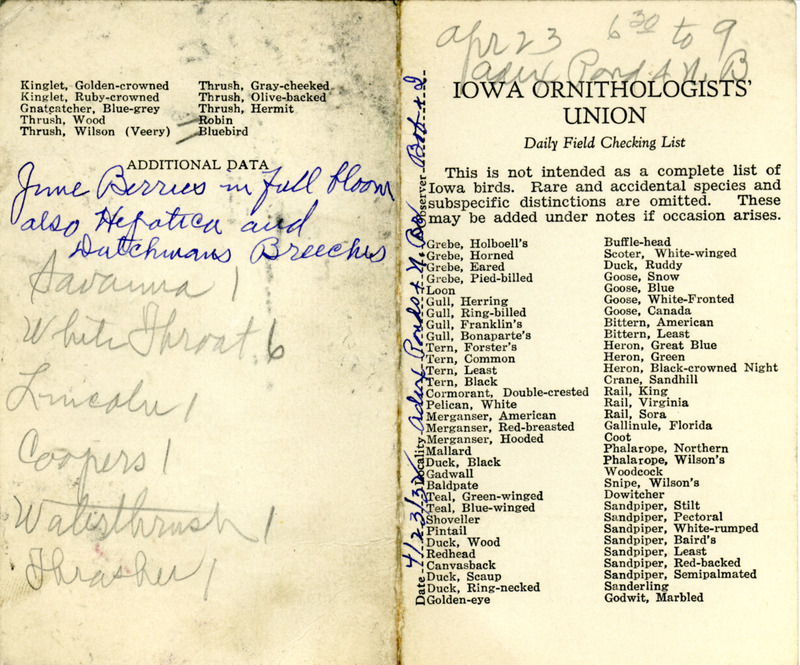 Kinglet, Golden-crowned
Kinglet, Ruby-crowned
Gnatcatcher, Blue-grey
Thrush, Wood
Thrush, Wilson (Veery)
Thrush, Gray-cheeked
Thrush, Olive-backed
Thrush, Hermit
Robin
Bluebird
ADDITIONAL DATA
June Berries in full bloom
also Hepatica and
Dutchmans Breeches
Savanna 1
White Throat 6
Lincoln 1
Coopers 1
Waterthrush 1
Thrasher 1
Apr 23 6 30 to 9
Pond + N. B
IOWA ORNITHOLOGISTS'
UNION
Daily Field Checking List
This is not intended as a complete list of
Iowa birds. Rare and accidental species and
subspecific distinctions are omitted. These
may be added under notes if occasion arises.
Date 4/23/3 Locality Ponds + N. Observer Bob + I
Grebe, Holboell's
Grebe, Horned
Grebe, Eared
Grebe, Pied-billed
Loon
Gull, Herring
Gull, Ring-billed
Gull, Franklin's
Gull, Bonaparte's
Tern, Forster's
Tern, Common
Tern, Least
Tern, Black
Cormorant, Double-crested
Pelican, White
Merganser, American
Merganser, Red-breasted
Merganser, Hooded
Mallard
Duck, Black
Gadwall
Baldpate
Teal, Green-winged
Teal, Blue-winged
Shoveller
Pintail
Duck, Wood
Redhead
Canvasback
Duck, Scaup
Duck, Ring-necked
Golden-eye
Buffle-head
Scoter, White-winged
Duck, Ruddy
Goose, Snow
Goose, Blue
Goose, White-Fronted
Goose, Canada
Bittern, American
Bittern, Least
Heron, Great Blue
Heron, Green
Heron, Black-crowned Night
Crane, Sandhill
Rail, King
Rail, Virginia
Rail, Sora
Gallinule, Florida
Coot
Phalarope, Northern
Phalarope, Wilson's
Woodcock
Snipe, Wilson's
Dowitcher
Sandpiper, Stilt
Sandpiper, Pectoral
Sandpiper, White-rumped
Sandpiper, Baird's
Sandpiper, Least
Sandpiper, Red-backed
Sandpiper, Semipalmated
Sanderling
Godwit, Marbled